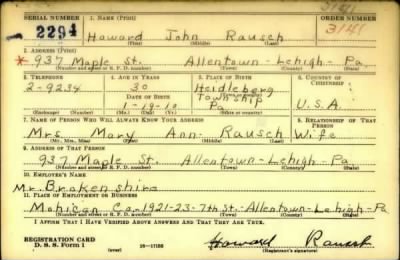 SERIAL NUMBER 1. NAME (Print) ORDER NUMBER
3141
2294 Howard John Rausch 3141
(First) (Middle) (Last)
2. ADDRESS (Print)
* 937 Maple St. Allentown-Lehigh-Pa.
(Number and street or R. F. D. number) (Town) (County) (State)
3. TELEPHONE 4. AGE IN YEARS 5. PLACE OF BIRTH 6. COUNTRY OF CITIZENSHIP
2-9234 30 Heidleberg
DATE OF BIRTH Township
1-19-10 Pa U.S.A.
(Exchange) (Number) (Mo.) (Day) (Yr.) (State or country)
7. NAME OF PERSON WHO WILL ALWAYS KNOW YOUR ADDRESS 8. RELATIONSHIP OF THAT PERSON
Mrs. Mary Ann- Rausch Wife
(Mr., Mrs., Miss) (First) (Middle) (Last)
9. ADDRESS OF THAT PERSON
937 Maple St. Allentown-Lehigh-Pa
(Number and street or R. F. D. number) (Town) (County) (State)
10. EMPLOYER'S NAME
Mr. Brokenshire
11. PLACE OF EMPLOYMENT OR BUSINESS
Mohican Co-1921-23-7th St.-Allentown-Lehigh-Pa
(Number and street or R. F. D. number) (Town) (County) (State)
I AFFIRM THAT I HAVE VERIFIED ABOVE ANSWERS AND THAT THEY ARE TRUE.
REGISTRATION CARD
D. S. S. Form 1 (over) 16-17105 Howard Rausch
(Registrant's signature)